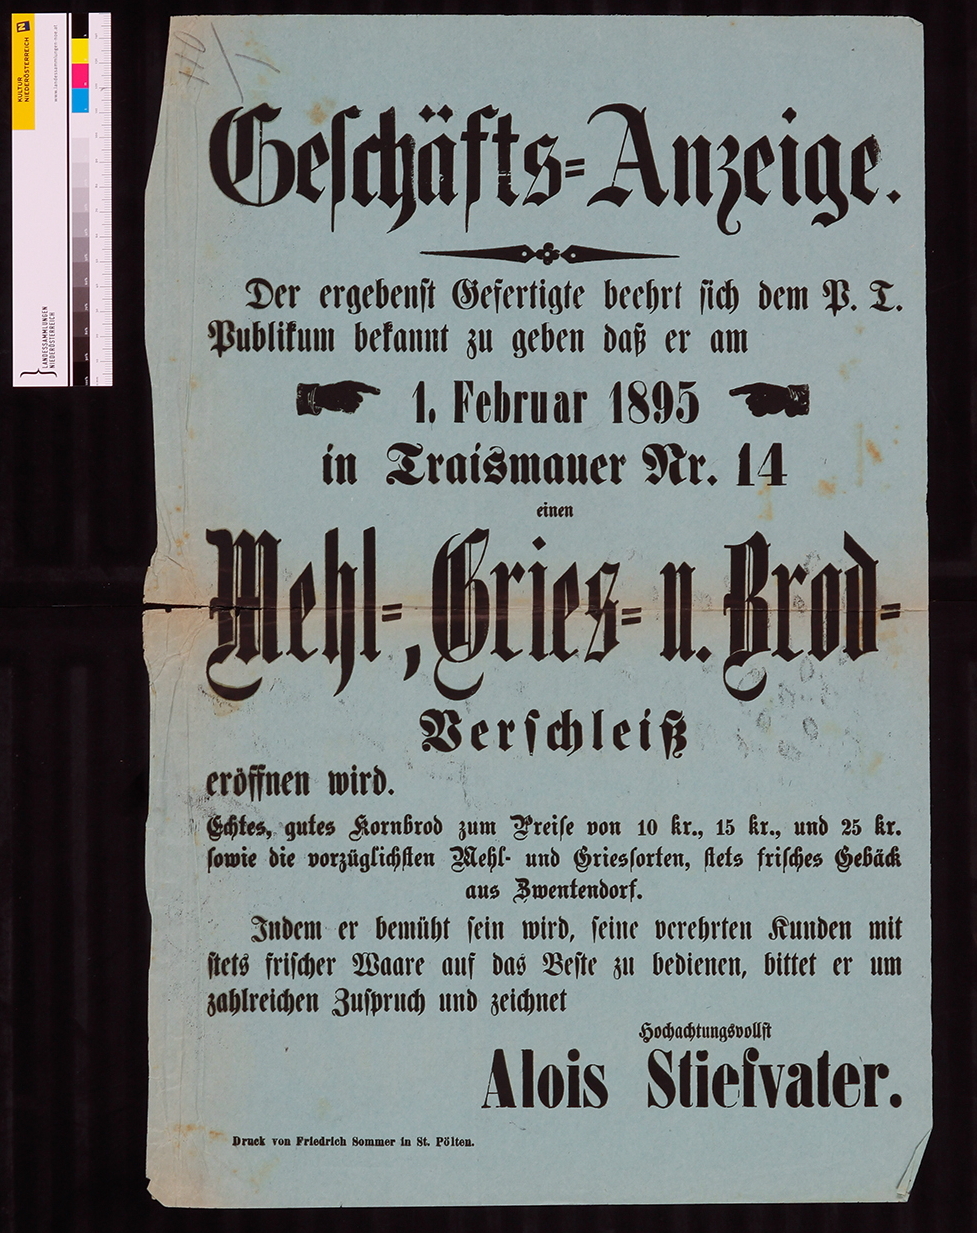 Geschäfts=Anzeige.
Der ergebenst Gefertigte beehrt sich dem P. T.
Publikum bekannt zu geben daß er am
1. Februar 1895
in Traismauer Nr. 14
einen
Mehl=, Gries= u. Brod=
Verschleiß
eröffnen wird.
Echtes, gutes Kornbrod zum Preise von 10 kr., 15 kr., und 25 kr.
sowie die vorzüglichsten Mehl- und Griessorten, stets frisches Gebäck
aus Zwentendorf.
Indem er bemüht sein wird, seine verehrten Kunden mit
stets frischer Waare auf das Beste zu bedienen, bittet er um
zahlreichen Zuspruch und zeichnet
Hochachtungsvollst
Alois Stiefvater.
Druck von Friedrich Sommer in St. Pölten.
KULTUR
NIEDERÖSTERREICH
www.landessammlungen-noe.at
LANDESSAMMLUNGEN
NIEDERÖSTERREICH